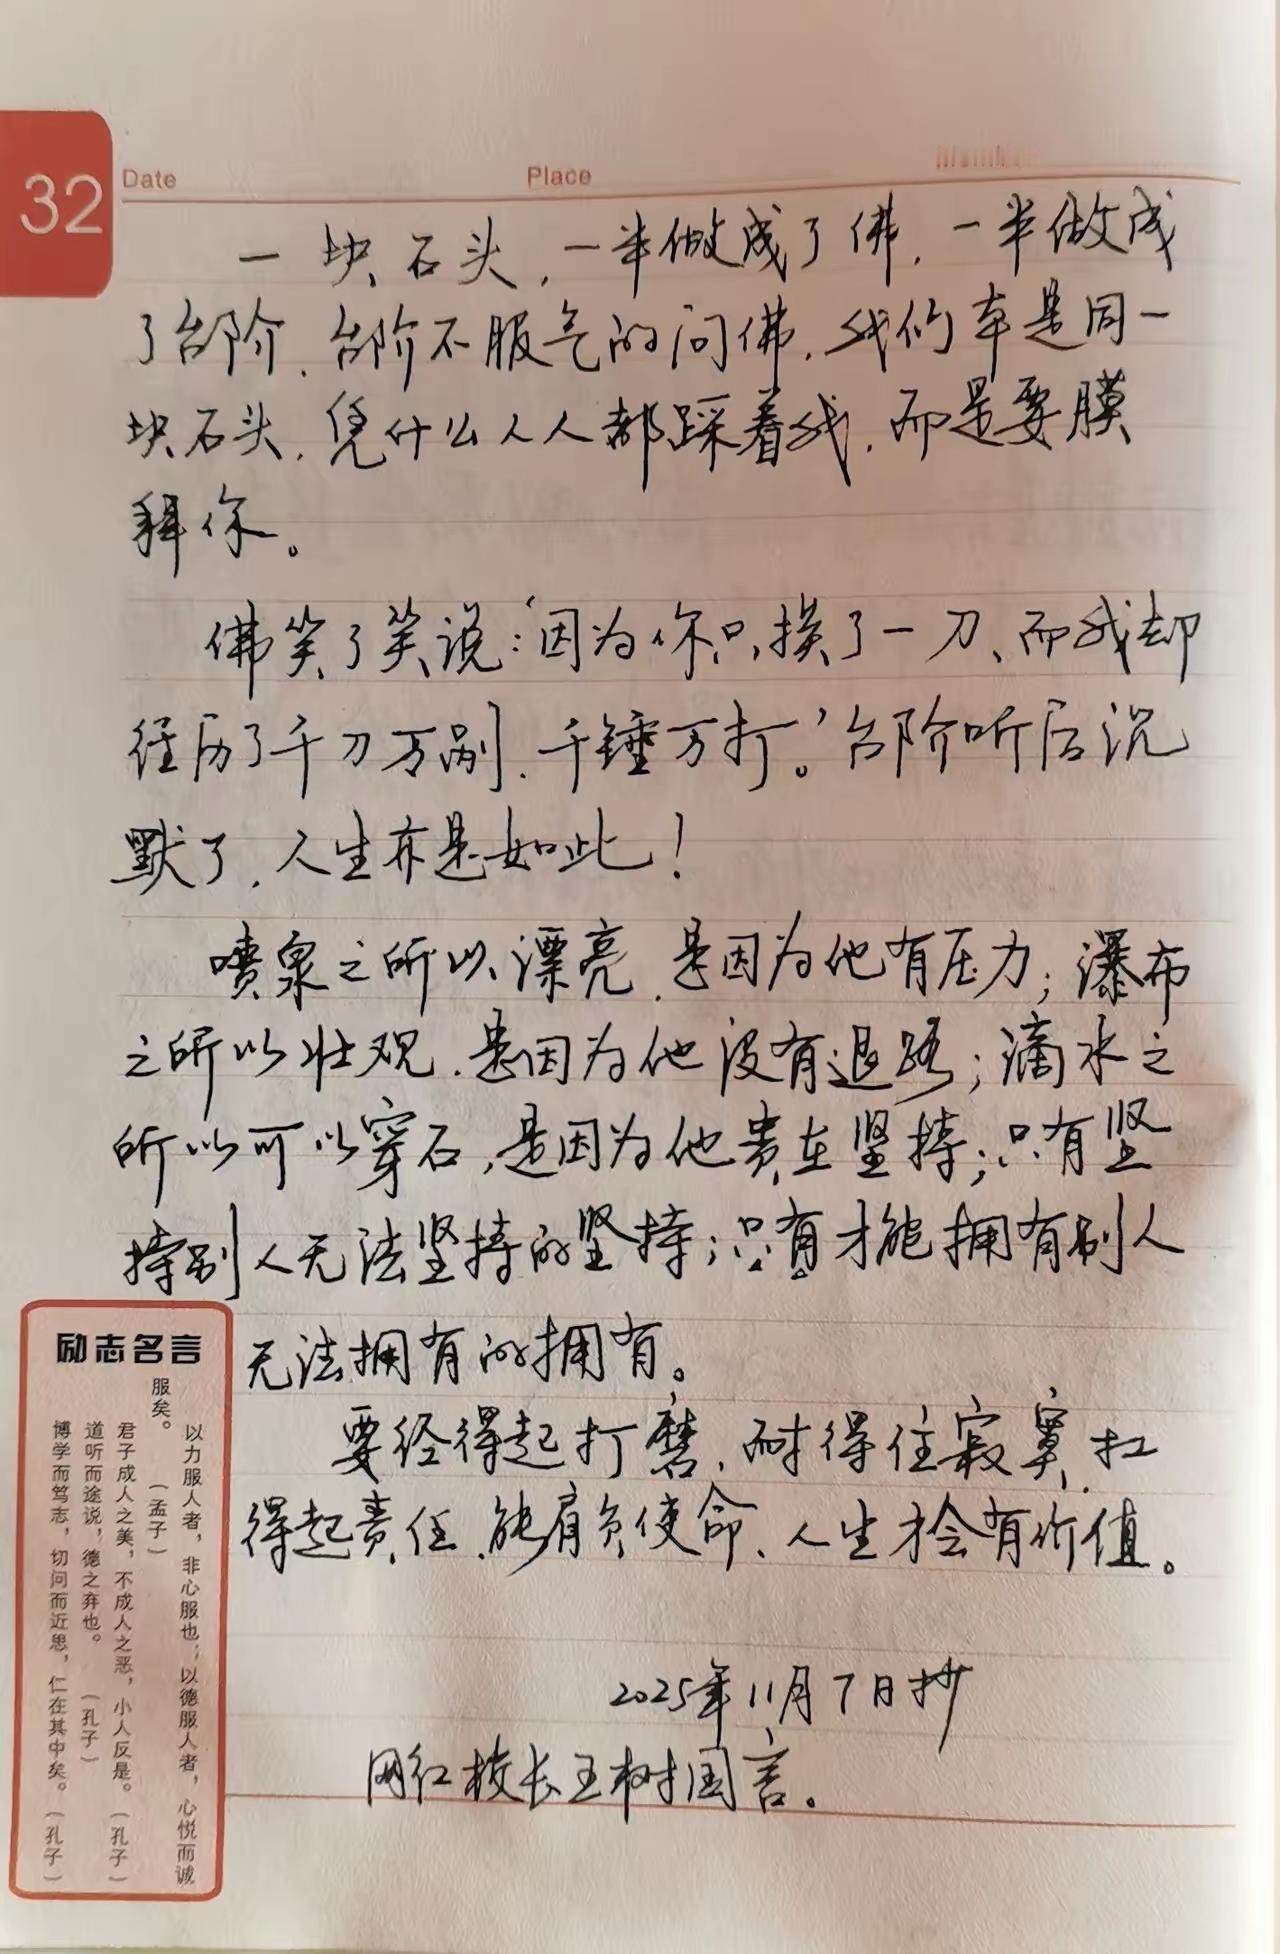 32
Date Place
一块石头，一半做成了佛，一半做成
了台阶，台阶不服气的问佛，我们本是同一
块石头，凭什么人人都踩着我，而是要膜
拜你。
佛笑了笑说：‘因为你只挨了一刀、而我却
经历了千刀万剐，千锤万打。’台阶听后沉
默了，人生亦是如此！
喷泉之所以漂亮，是因为他有压力；瀑布
之所以壮观，是因为他没有退路；滴水之
所以可以穿石，是因为他贵在坚持；只有坚
持别人无法坚持的坚持；只有才能拥有别人
无法拥有的拥有。
要经得起打磨，耐得住寂寞，扛
得起责任，能肩负使命、人生才会有价值。
2025年11月7日抄
网红校长王树国言。
励志名言
以力服人者，非心服也；以德服人者，心悦而诚
服矣。 （孟子）
君子成人之美，不成人之恶，小人反是。（孔子）
道听而途说，德之弃也。 （孔子）
博学而笃志，切问而近思，仁在其中矣。（孔子）